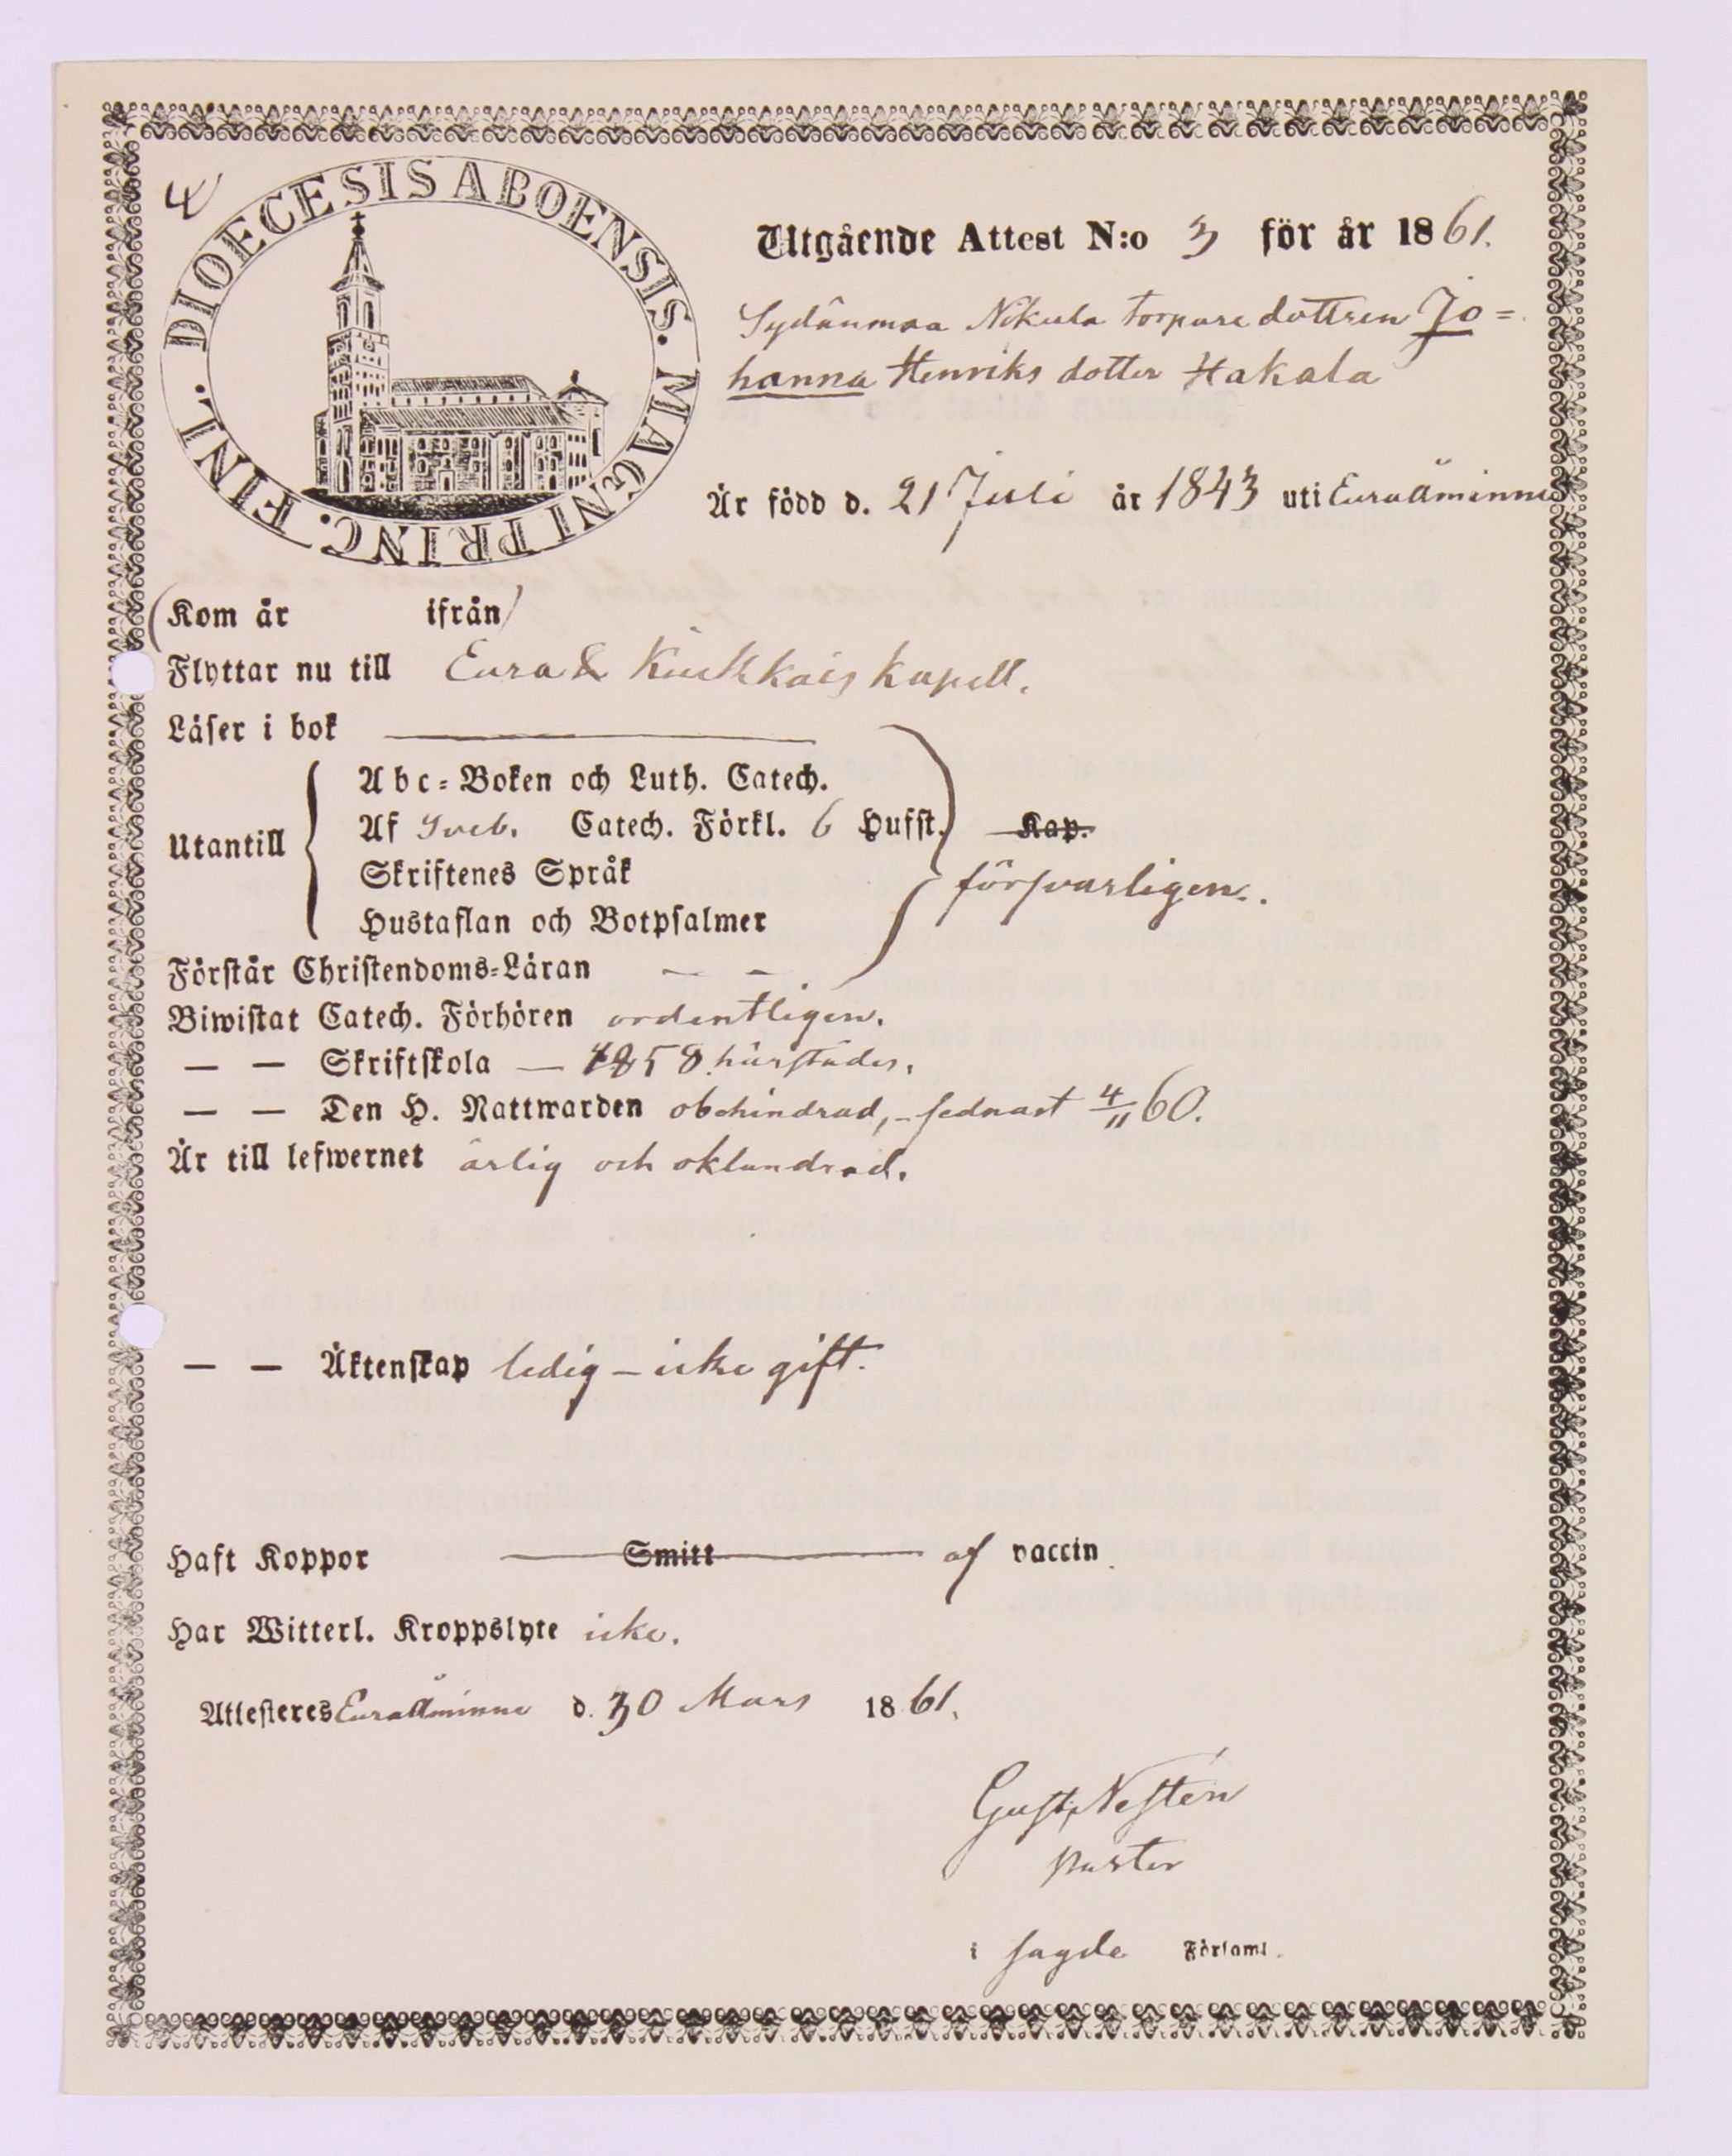 4
DIOECESIS ABOENSIS. MAGNI PRINC. FINL.
Utgående Attest N:o 3 för år 1861.
Sydänmaa Nikula torpare dottren Jo=
hanna Henriks dotter Hakala
Är född d. 21 Juli år 1843 uti Euraåminne
(Kom år ifrån)
Flyttar nu till Eura & Kiukkais Kapell.
Läser i bok
Abc=Boken och Luth. Catech.
Utantill
Af Sveb. Catech. Förkl. 6 Hufst. Kap.
Skriftenes Språk
försvarligen.
Hustaflan och Botpsalmer
Förstår Christendoms=Läran — —
Biwistat Catech. Förhören ordentligen.
— — Skriftskola — 1858 härstädes.
— — Den H. Nattwarden obehindrad, - sednast 4/11 60.
Är till lefwernet ärlig och oklandrad.
— — Äktenskap ledig — icke gift.
Haft Koppor Smitt af vaccin.
Har Witterl. Kroppslyte icke.
Attesteres Euraåminne d. 30 Mars 1861.
Gust. Nestén
Pastor
i sagde Församl.